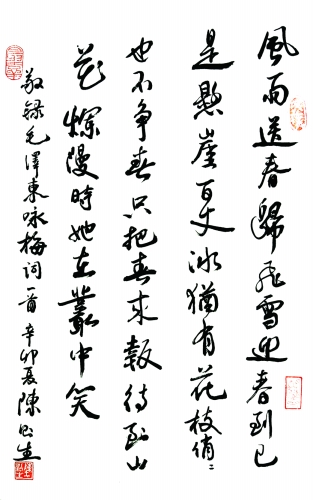 風雨送春歸飛雪迎春到已
是懸崖百丈冰猶有花枝俏〻
也不争春只把春来報待到山
花爛漫時她在叢中笑
敬録毛澤東咏梅詞一首 辛卯夏陳生